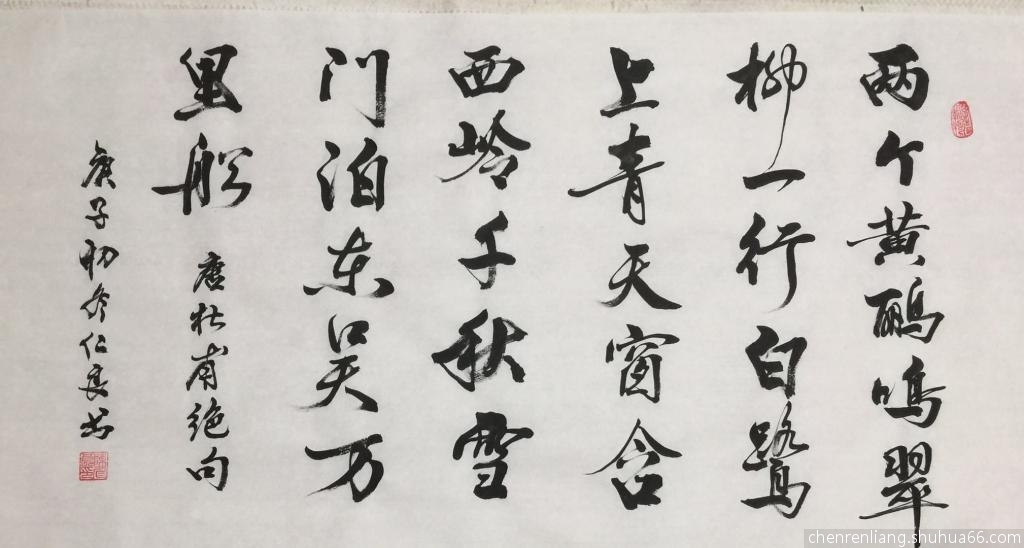 两个黄鹂鸣翠
柳一行白鹭
上青天窗含
西岭千秋雪
门泊东吴万
里船 唐杜甫绝句
庚子初冬仁良书
chenrenliang.shuhua66.com